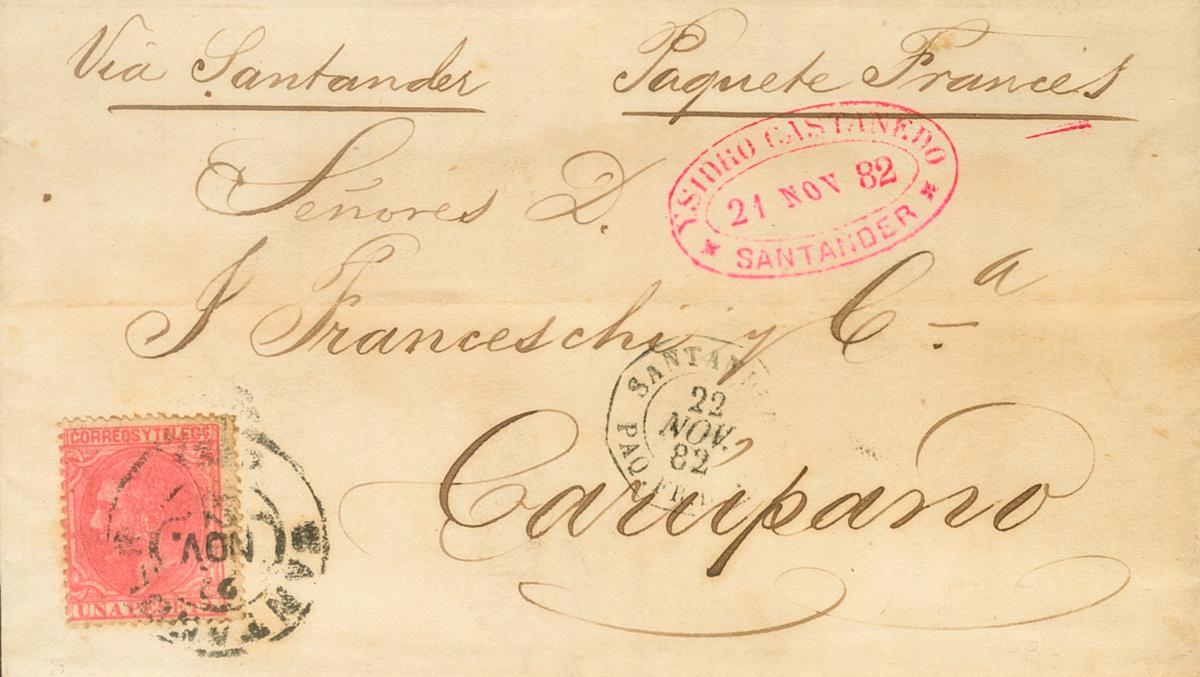 Via Santander Paquete Francés
YSIDRO CASTANEDO
21 NOV 82
SANTANDER
Señores D.
J Franceschi y Cª
SANTANDER
22
NOV.
82
PAQ. FR.
Carúpano
CORREOS Y TELEGS
NOV.
UNA